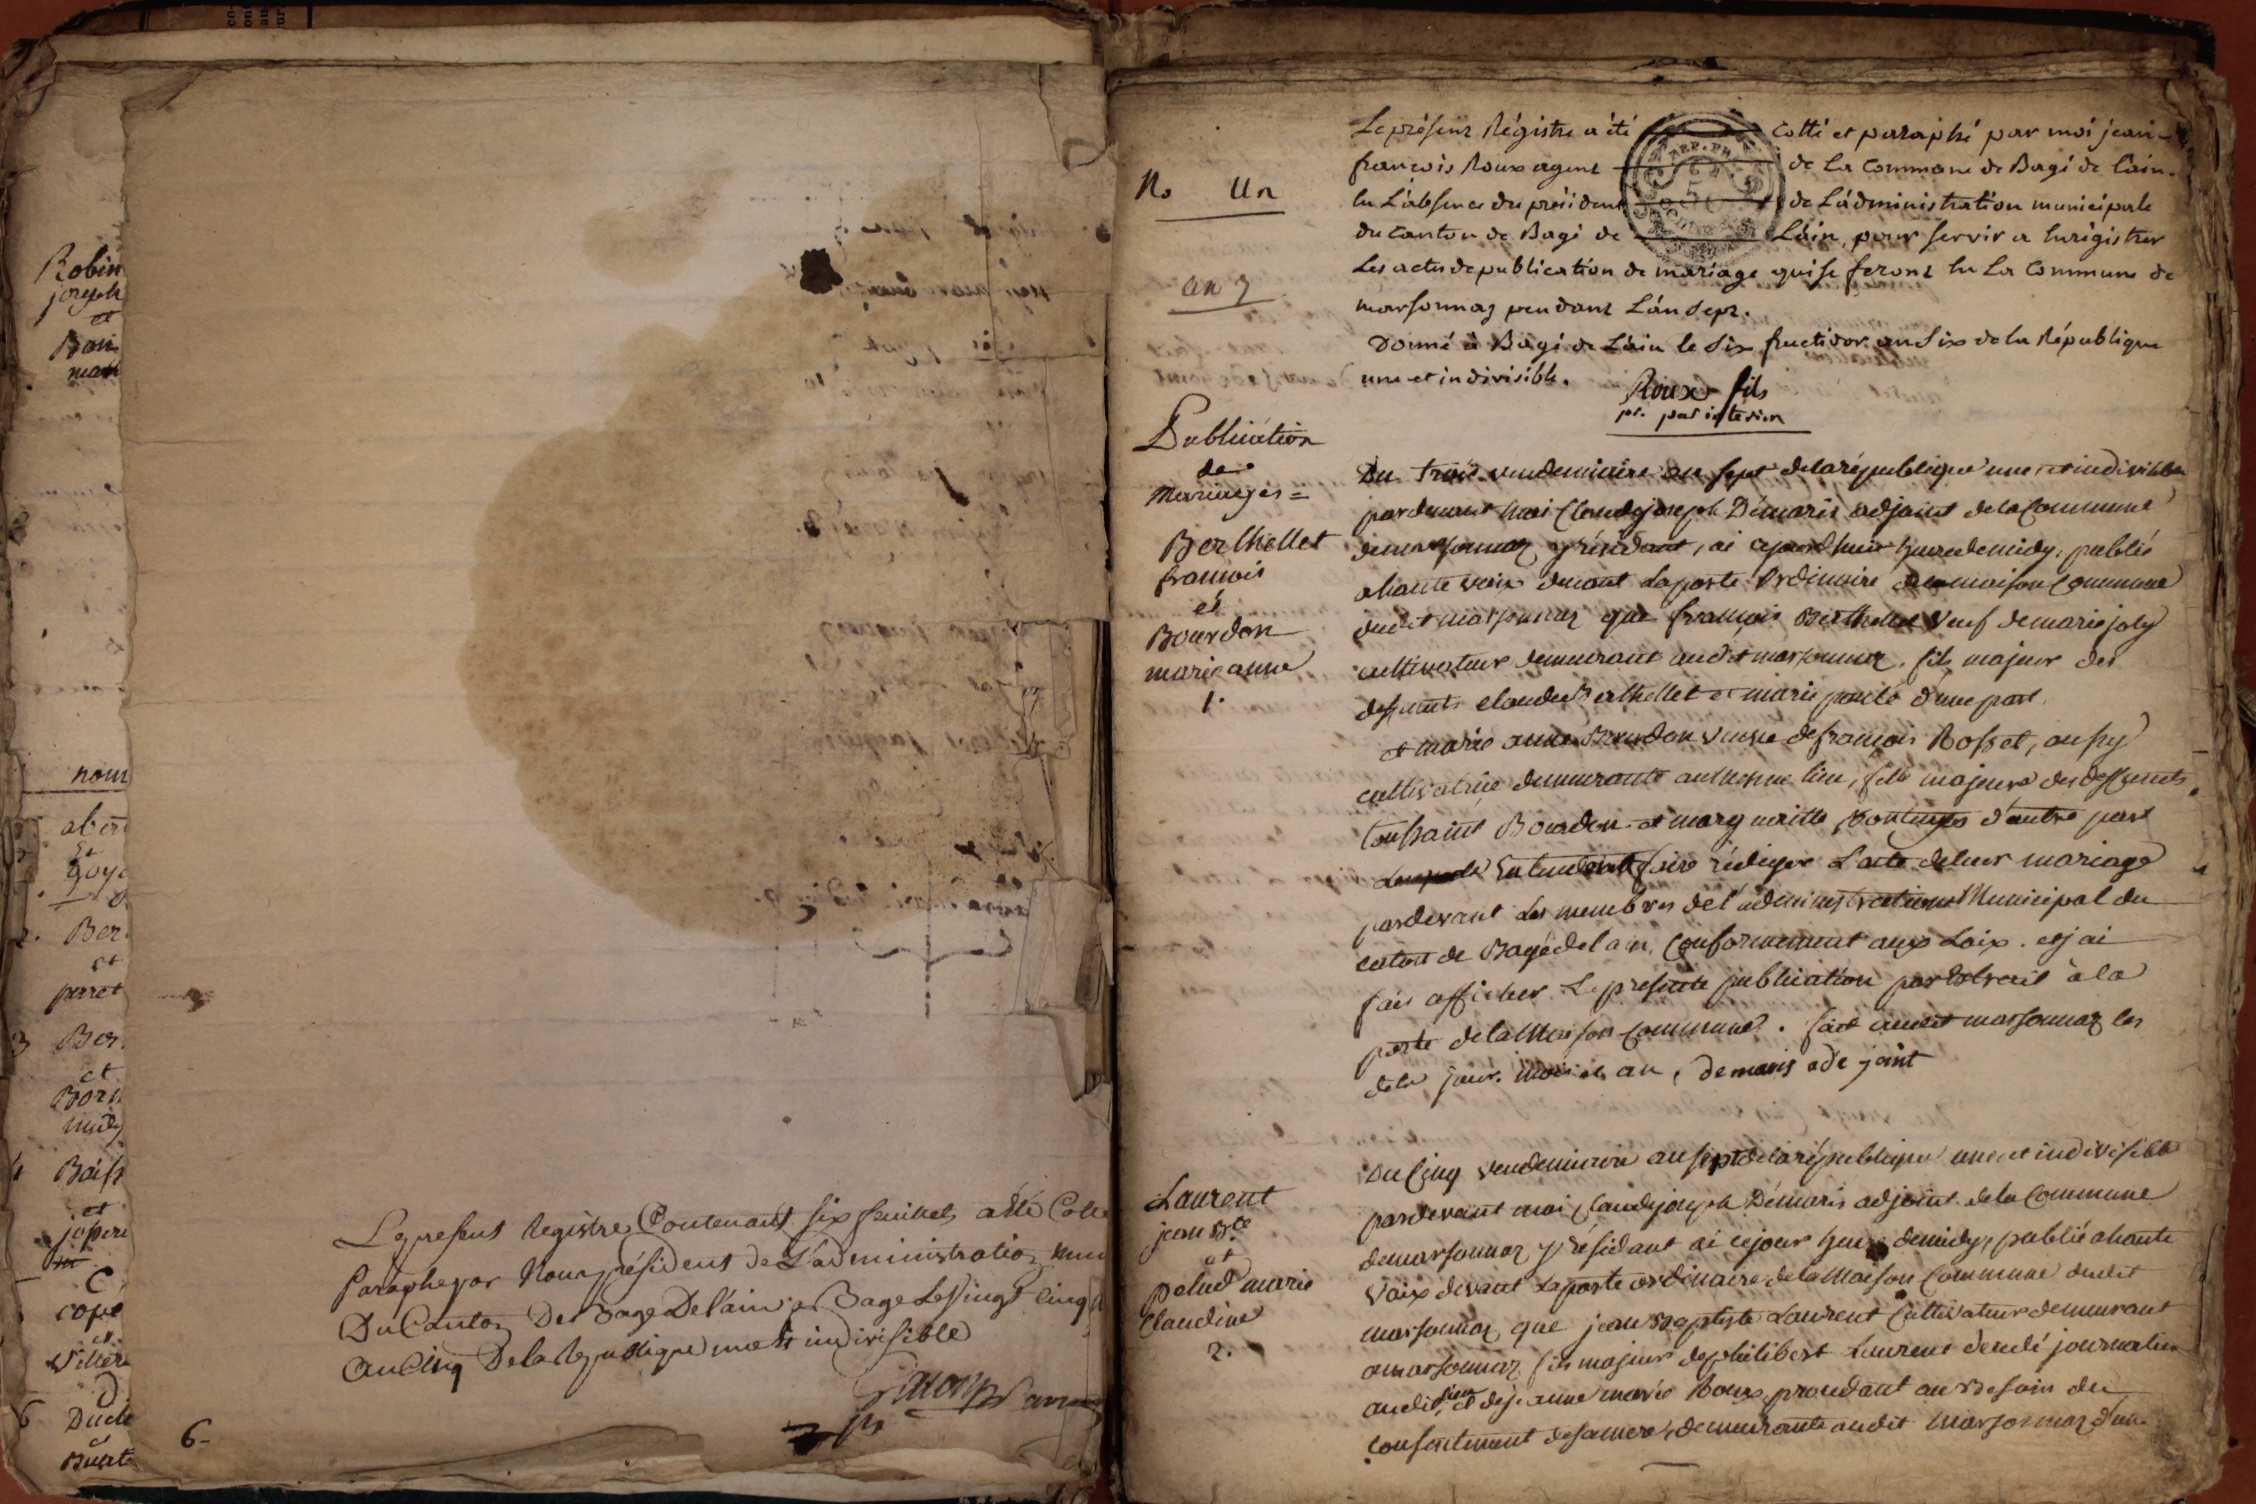 Robin
joseph
et
nom
et
Ber
et
perret
3 Ber
et
4
et
C
et
6
et
Le present Registre Contenant six feuillets a été Cotté
Paraphé par Nous président de L'administration
Du Canton De Bagé De l'ain a Bagé Le vingt cinq
an Cinq De la Republique une et indivisible
6-
No Un
an 7
Le présent Régistre a été cotté et paraphé par moi jean-
françois Roux agent de la Commune de Bagé de l'ain.
En L'absence du président de L'administration municipale
du Canton de Bagé de L'ain, pour servir a Enrégistrer
Les actes de publication de mariage qui se feront En La Commune de
marsonnaz pendant L'an sept.
Donné à Bagé de L'ain le six fructidor an six de la République
une et indivisible.
Roux fils
pt. par intérim
Publication
de
Mariages =
Berthellet
francois
et
Bourdon
marie anne
1.
Du trois vendemiaire an sept de la république une et indivisible
pardevant moi Claude joseph Démaris adjoint de la Commune
de marsonnaz y résidant, ai aujourdhuir heure de midy, publié
a haute voix devant La porte Ordinaire de la maison Commune
dudit marsonnaz que francois Berthellet Veuf de marie joly
cultivateur demeurant audit marsonnaz, fils majeur des
deffunts claude Berthellet et marie d'une part.
et marie anne Bourdon veuve de francois Rosset, aussy
cultivatrice demeurante au mesme lieu, fille majeure des deffunts
toussaint Bourdon et margueritte d'autre part
Entendent faire rédiger L'acte de leur mariage
pardevant Les membres de l'administration Municipal du
caton de Bagé de l'ain, Conformement aux Loix. et j'ai
fais afficher La presente publication par Extrait à la
porte de la Maison Commune. fait audit marsonnaz les
jour. mois et an, demaris ade joint
Laurent
jean Bte
et
pelud marie
Claudine
2.
Du Cinq vendemiaire an sept de la république une et indivisible
pardevant moi Claude joseph Démaris adjoint de la Commune
de marsonnaz y résidant ai cejour heure de midy, publié a haute
Voix devant La porte ordinaire de la Maison Commune dudit
marsonnaz que jean Baptiste Laurent Cultivateur demeurant
a marsonnaz fils majeur de philibert Laurent decedé journalier
audit lieu et de jeanne marie Roux, proudant au Besoin du
Consentement de sa mere, demeurante audit Marsonnaz d'une